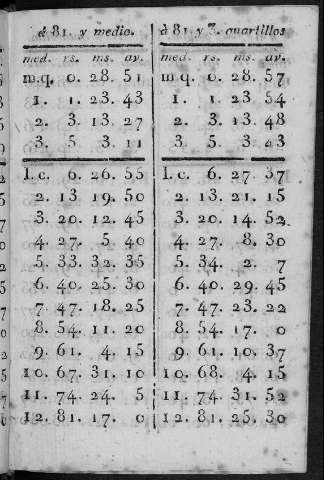 à 81. y medio.
med. rs. ms. av.
m.q. 0. 28. 51
1. 1. 23. 43
2. 3. 13. 27
3. 5. 3. 11
I.c. 6. 26. 55
2. 13 19. 50
3. 20. 12. 45
4. 27. 5. 40
5. 33. 32. 35
6. 40. 25. 30
7. 47. 18. 25
8. 54. 11. 20
9. 61. 4. 15
10. 67. 31. 10
11. 74. 24. 5
12. 81. 17. 0
à 81. y 3. quartillos
med. rs. ms. av.
m q. 0. 28. 57
1. 1. 23 54
2. 3. 13. 48
3. 5. 3. 43
I.c. 6. 27 37
2. 13. 21. 15
3. 20. 14. 52
4. 27. 8. 30
5. 34. 2. 7
6. 40. 29. 45
7. 47. 23. 22
8. 54. 17. 0
9. 61. 10. 37
10. 68. 4. 15
11. 74. 31. 52
12. 81. 25. 30